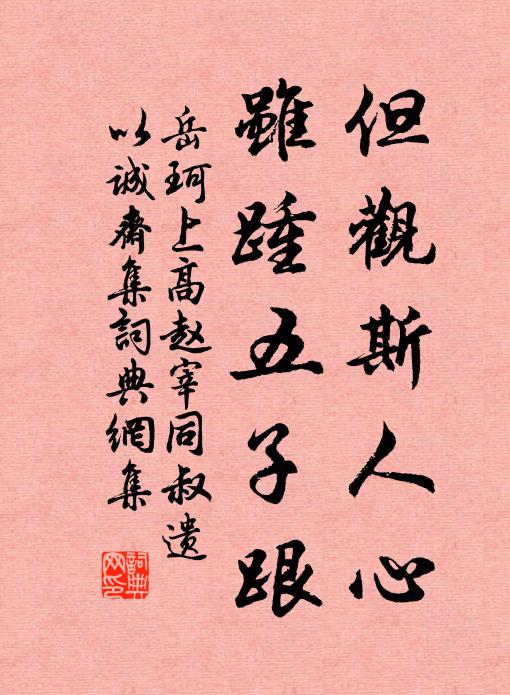 但觀斯人心
雖踵五子跟
岳珂上高赵宰同叔遗
以诚齋集詞典網集
詞典網印